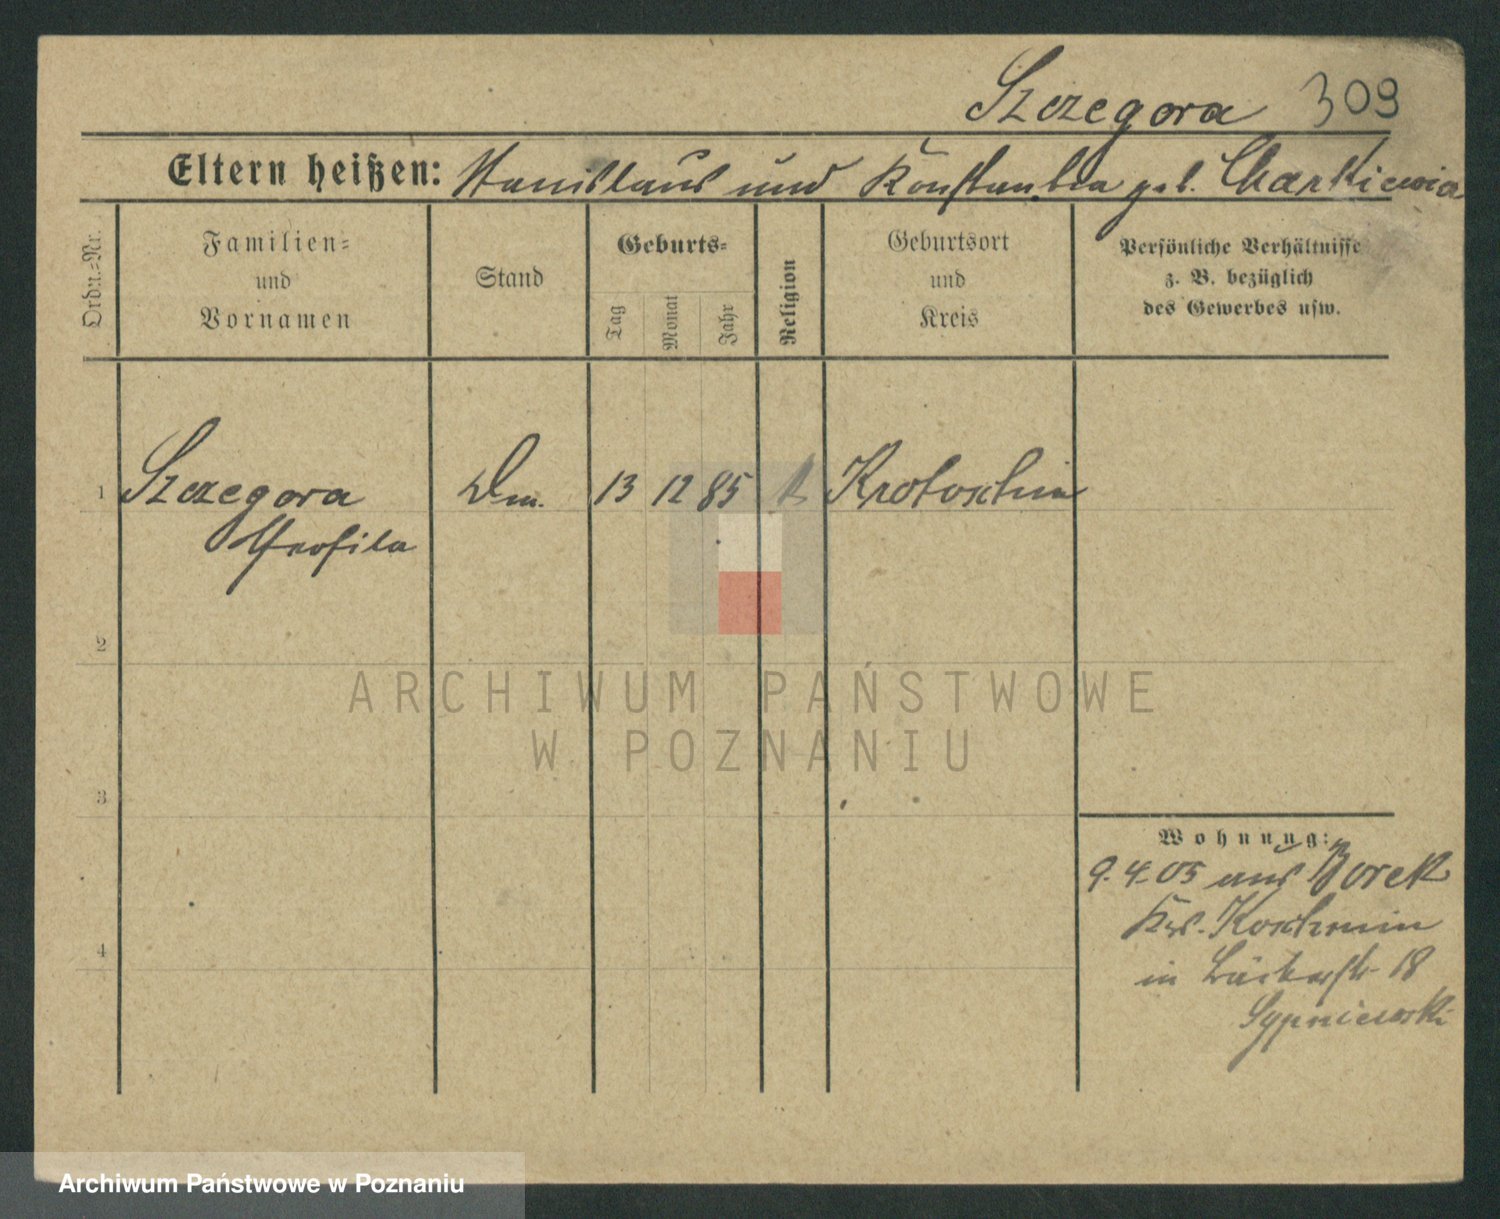 Szczegora 309
Eltern heißen: Stanislaus und Konstantia geb. Charkiewicz
Ordn.-Nr.
Familien-
und
Vornamen
Stand
Geburts-
Tag
Monat
Jahr
Religion
Geburtsort
und
Kreis
Persönliche Verhältnisse
z. B. bezüglich
des Gewerbes usw.
1 Szczegora Dm. 13 12 85 k Krotoschin
Teofila
2
ARCHIWUM PAŃSTWOWE
W POZNANIU
3
Wohnung:
9.4.05 aus Borek
Krs. Koschmin
in Bäckerstr. 18
Sypniewski
4
Archiwum Państwowe w Poznaniu